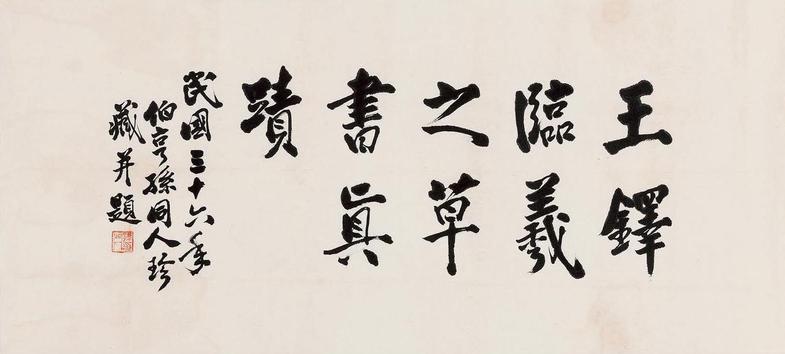 王鐸
臨羲
之草
書眞
蹟
民國三十六年
伯亨孫同人珍
藏并題